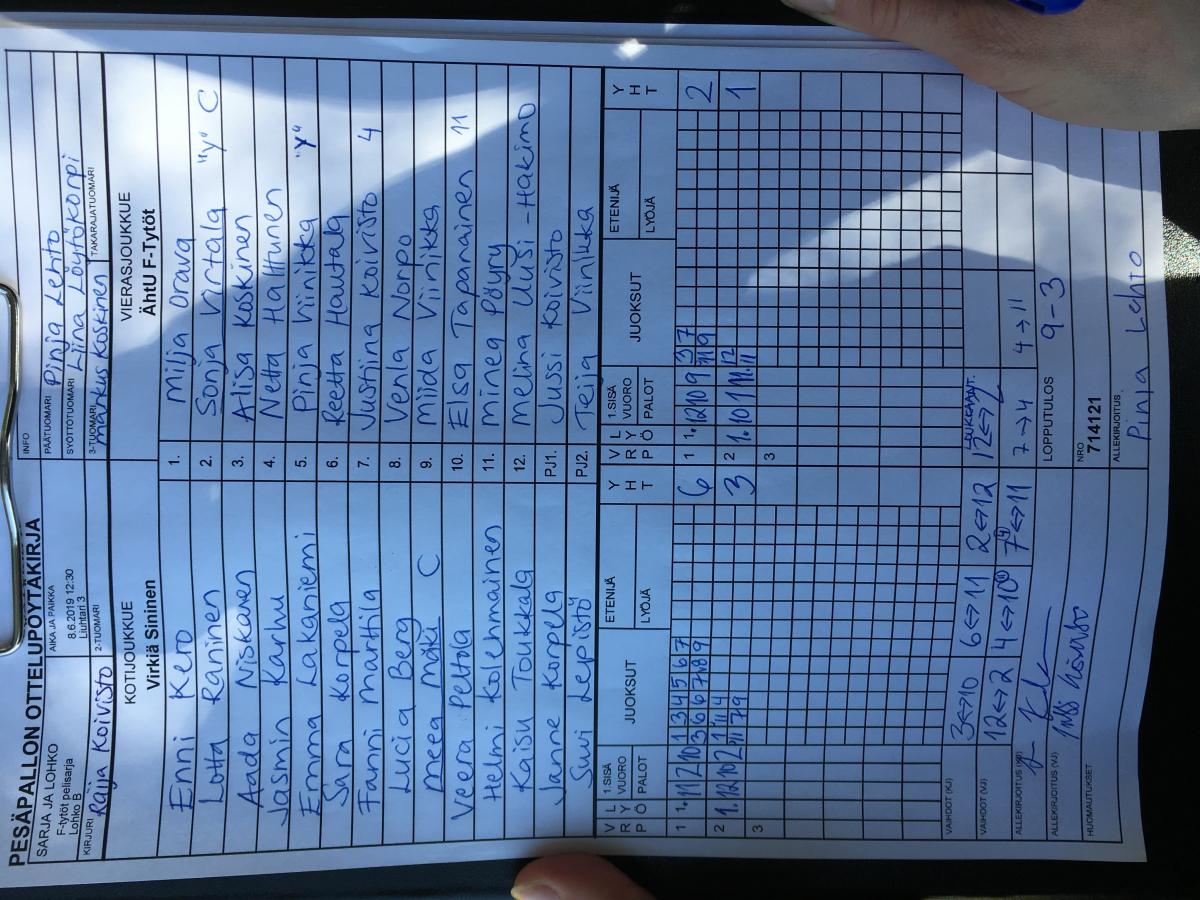 PESÄPALLON OTTELUPÖYTÄKIRJA
SARJA JA LOHKO
F-tytöt pelisarja
Lohko B
AIKA JA PAIKKA
8.6.2019 12:30
Liuhtari 3
INFO
PÄÄTUOMARI Pinja Lehto
SYÖTTÖTUOMARI Liina Löytökorpi
KIRJURI Raija Koivisto 2-TUOMARI 3-TUOMARI Markus Koskinen TAKARAJATUOMARI
KOTIJOUKKUE VIERASJOUKKUE
Virkiä Sininen ÄhtU F-Tytöt
Enni Kero 1. Milja Orava
Lotta Raninen 2. Sonja Vartala "y" C
Aada Niskanen 3. Alisa Koskinen
Jasmin Karhu 4. Netta Halttunen
Emma Lakaniemi 5. Pinja Viinikka "y"
Sara Korpela 6. Reetta Hautala
Fanni Marttila 7. Justiina Koivisto 4
Lucia Berg 8. Venla Norpo
Meea Mäki C 9. Miida Viinikka
Veera Peltola 10. Elsa Tapanainen 11
Helmi Kolehmainen 11. Minea Pöyry
Kaisu Toukkala 12. Melina Uusi-Hakimo
Janne Korpela PJ1. Jussi Koivisto
Suvi Lepistö PJ2. Teija Viinikka
V L 1.SISÄ JUOKSUT ETENIJÄ Y V L 1.SISÄ JUOKSUT ETENIJÄ Y
R Y VUORO H R Y VUORO H
P Ö PALOT LYÖJÄ T P Ö PALOT LYÖJÄ T
1 1. 11 2 10 1 3 4 5 6 7 6 1 1. 12 10 9 3 7 2
3 6 6 7 11 8 9 11 9
2 1. 12 10 2 1 11 4 3 2 1. 10 1 11 12 1
11 7 9 11
3 3
VAIHDOT (KJ) 3<->10 6<->11 2<->12 12<->2
VAIHDOT (VJ) 12<->2 4<->10 7<->11 7->4 4->11
ALLEKIRJOITUS (KJ) LOPPUTULOS 9-3
ALLEKIRJOITUS (VJ)
HUOMAUTUKSET
NRO
714121
ALLEKIRJOITUS
Pinja Lehto